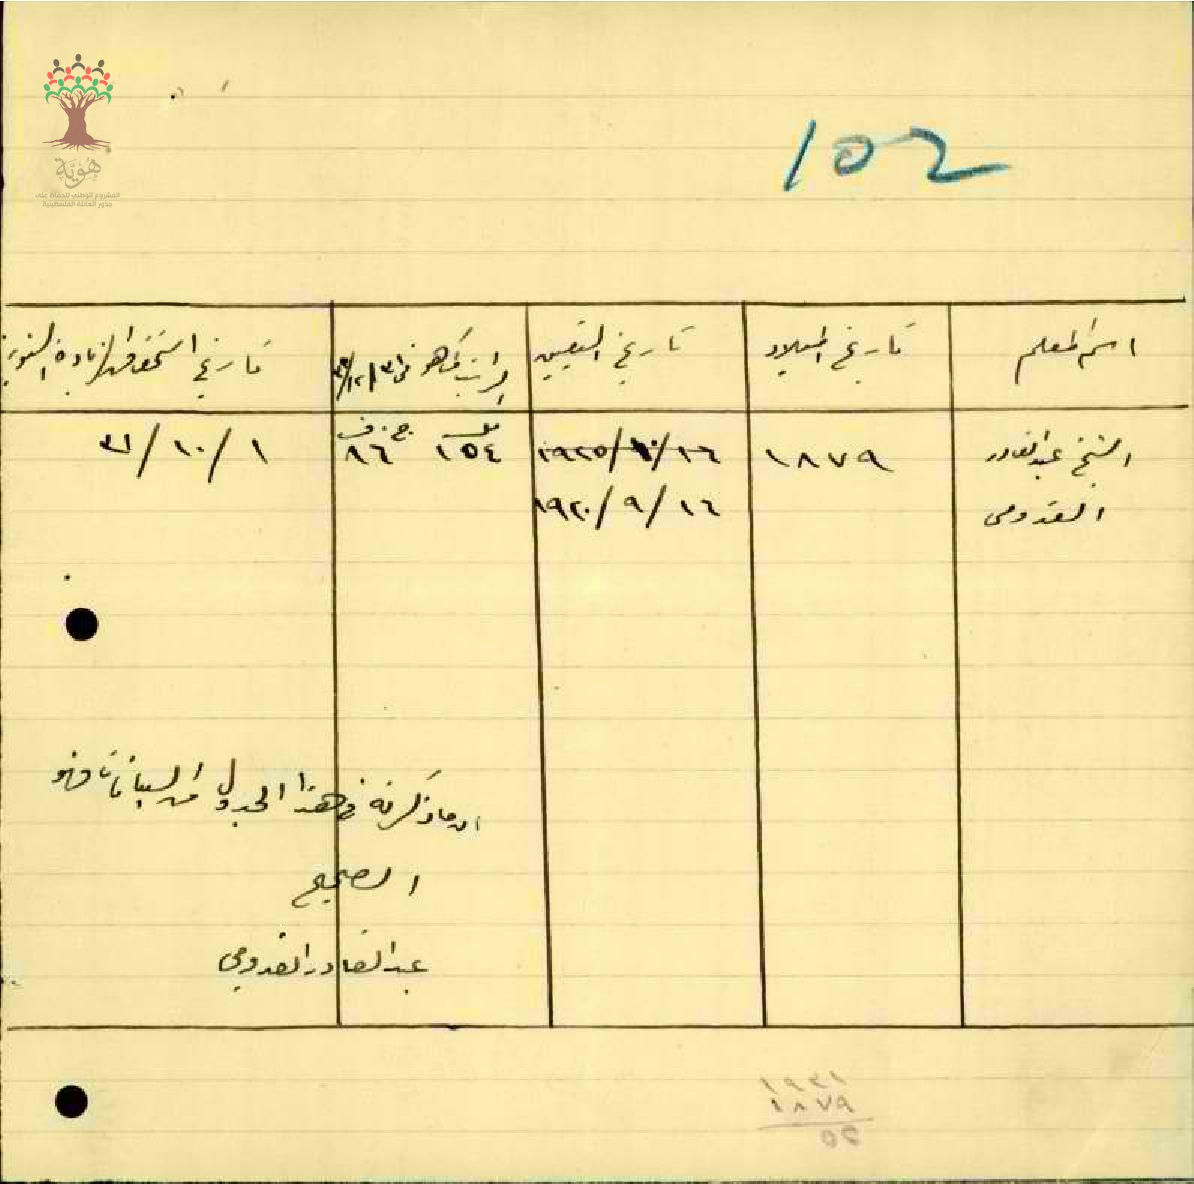 هُوِيَّة
المشروع الوطني للحفاظ على
جذور العائلة الفلسطينية
١٥٢
اسم المعلم
تاريخ الميلاد
تاريخ التعيين
الراتب كما هو في ٣١/١٢/
تاريخ استحقاق الزيادة السنوية
الشيخ عبد القادر
القدومي
١٨٧٩
١٩٢٥/١٠/١٦
١٩٢٠/٩/١٦
مل ج.ف
١٥٤ ٨٦
١/١٠/٣١
ان ما ذكرته في هذا الجدول من البيانات هو
الصحيح
عبد القادر القدومي
١٨٧٩
٥٥